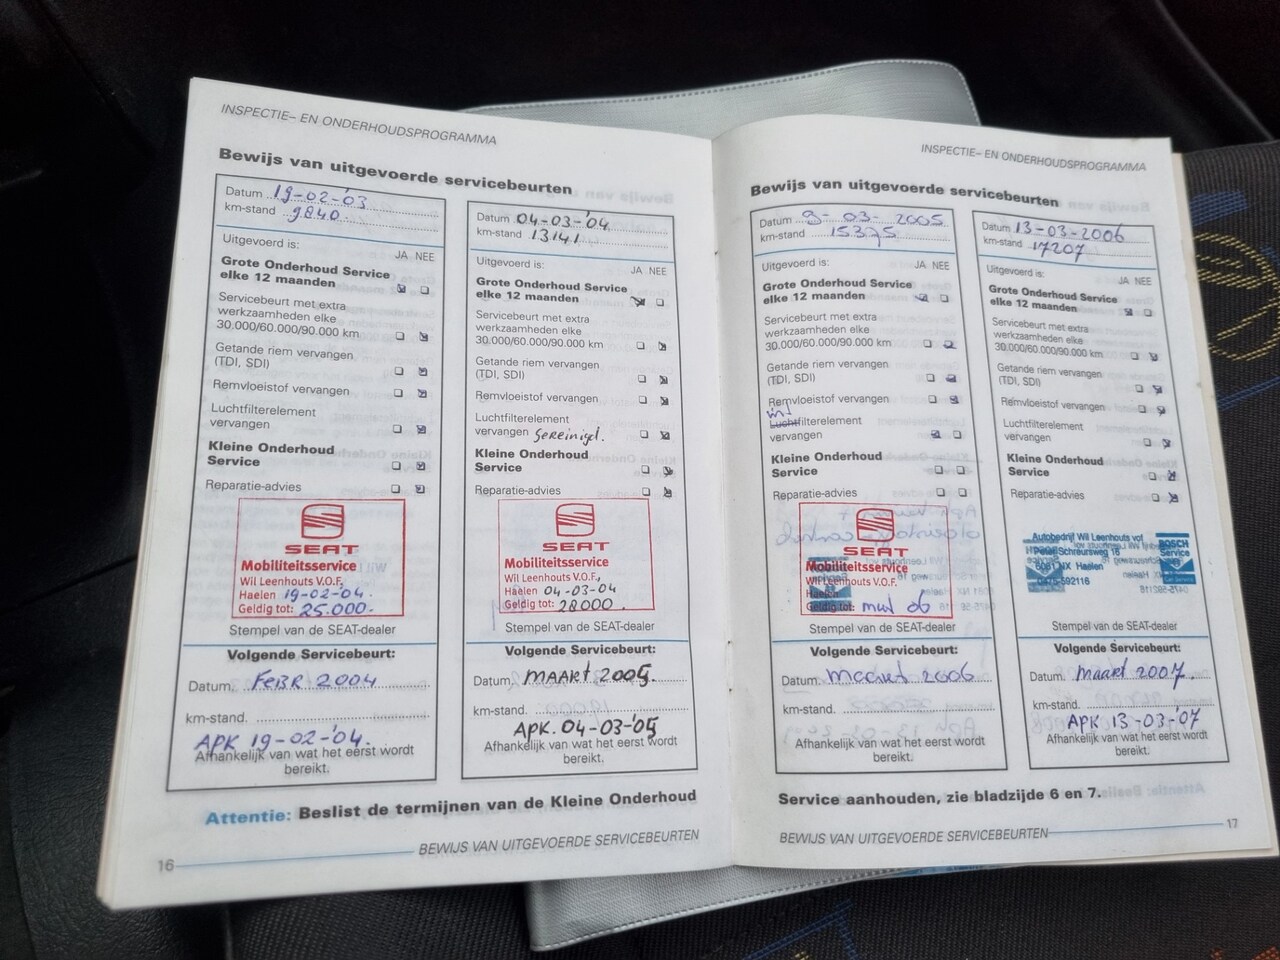 INSPECTIE- EN ONDERHOUDSPROGRAMMA
Bewijs van uitgevoerde servicebeurten
Datum 19-02-'03
km-stand 9840
Uitgevoerd is:
JA NEE
Grote Onderhoud Service
elke 12 maanden
Servicebeurt met extra
werkzaamheden elke
30.000/60.000/90.000 km
Getande riem vervangen
(TDI, SDI)
Remvloeistof vervangen
Luchtfilterelement
vervangen
Kleine Onderhoud
Service
Reparatie-advies
SEAT
Mobiliteitsservice
Wil Leenhouts V.O.F.
Haelen 19-02-'04.
Geldig tot: 25.000.-
Stempel van de SEAT-dealer
Volgende Servicebeurt:
Datum. FEBR 2004
km-stand.
APK 19-02-'04.
Afhankelijk van wat het eerst wordt
bereikt.
Datum 04-03-'04
km-stand 13141
Uitgevoerd is:
JA NEE
Grote Onderhoud Service
elke 12 maanden
Servicebeurt met extra
werkzaamheden elke
30.000/60.000/90.000 km
Getande riem vervangen
(TDI, SDI)
Remvloeistof vervangen
Luchtfilterelement
vervangen gereinigd.
Kleine Onderhoud
Service
Reparatie-advies
SEAT
Mobiliteitsservice
Wil Leenhouts V.O.F.
Haelen 04-03-04
Geldig tot: 28000.
Stempel van de SEAT-dealer
Volgende Servicebeurt:
Datum. MAART 2005
km-stand.
APK. 04-03-'05
Afhankelijk van wat het eerst wordt
bereikt.
Attentie: Beslist de termijnen van de Kleine Onderhoud
16
BEWIJS VAN UITGEVOERDE SERVICEBEURTEN
INSPECTIE- EN ONDERHOUDSPROGRAMMA
Bewijs van uitgevoerde servicebeurten
Datum 9-03-2005
km-stand 15375
Uitgevoerd is:
JA NEE
Grote Onderhoud Service
elke 12 maanden
Servicebeurt met extra
werkzaamheden elke
30.000/60.000/90.000 km
Getande riem vervangen
(TDI, SDI)
Remvloeistof vervangen
Luchtfilterelement
vervangen
Kleine Onderhoud
Service
Reparatie-advies
SEAT
Mobiliteitsservice
Wil Leenhouts V.O.F.
Haelen
Geldig tot: mrt 06
Stempel van de SEAT-dealer
Volgende Servicebeurt:
Datum. maart 2006
km-stand.
Afhankelijk van wat het eerst wordt
bereikt.
Datum 13-03-2006
km-stand 17207
JA NEE
Uitgevoerd is:
Grote Onderhoud Service
elke 12 maanden
Servicebeurt met extra
werkzaamheden elke
30.000/60.000/90.000 km
Getande riem vervangen
(TDI, SDI)
Remvloeistof vervangen
Luchtfilterelement
vervangen
Kleine Onderhoud
Service
Reparatie-advies
Autobedrijf Wil Leenhouts vof
Peter Schreursweg 16
6081 NX Haelen
0475-592116
BOSCH
Service
Stempel van de SEAT-dealer
Volgende Servicebeurt:
Datum. maart 2007.
km-stand.
APK 13-03-'07
Afhankelijk van wat het eerst wordt
bereikt.
Service aanhouden, zie bladzijde 6 en 7.
BEWIJS VAN UITGEVOERDE SERVICEBEURTEN
17